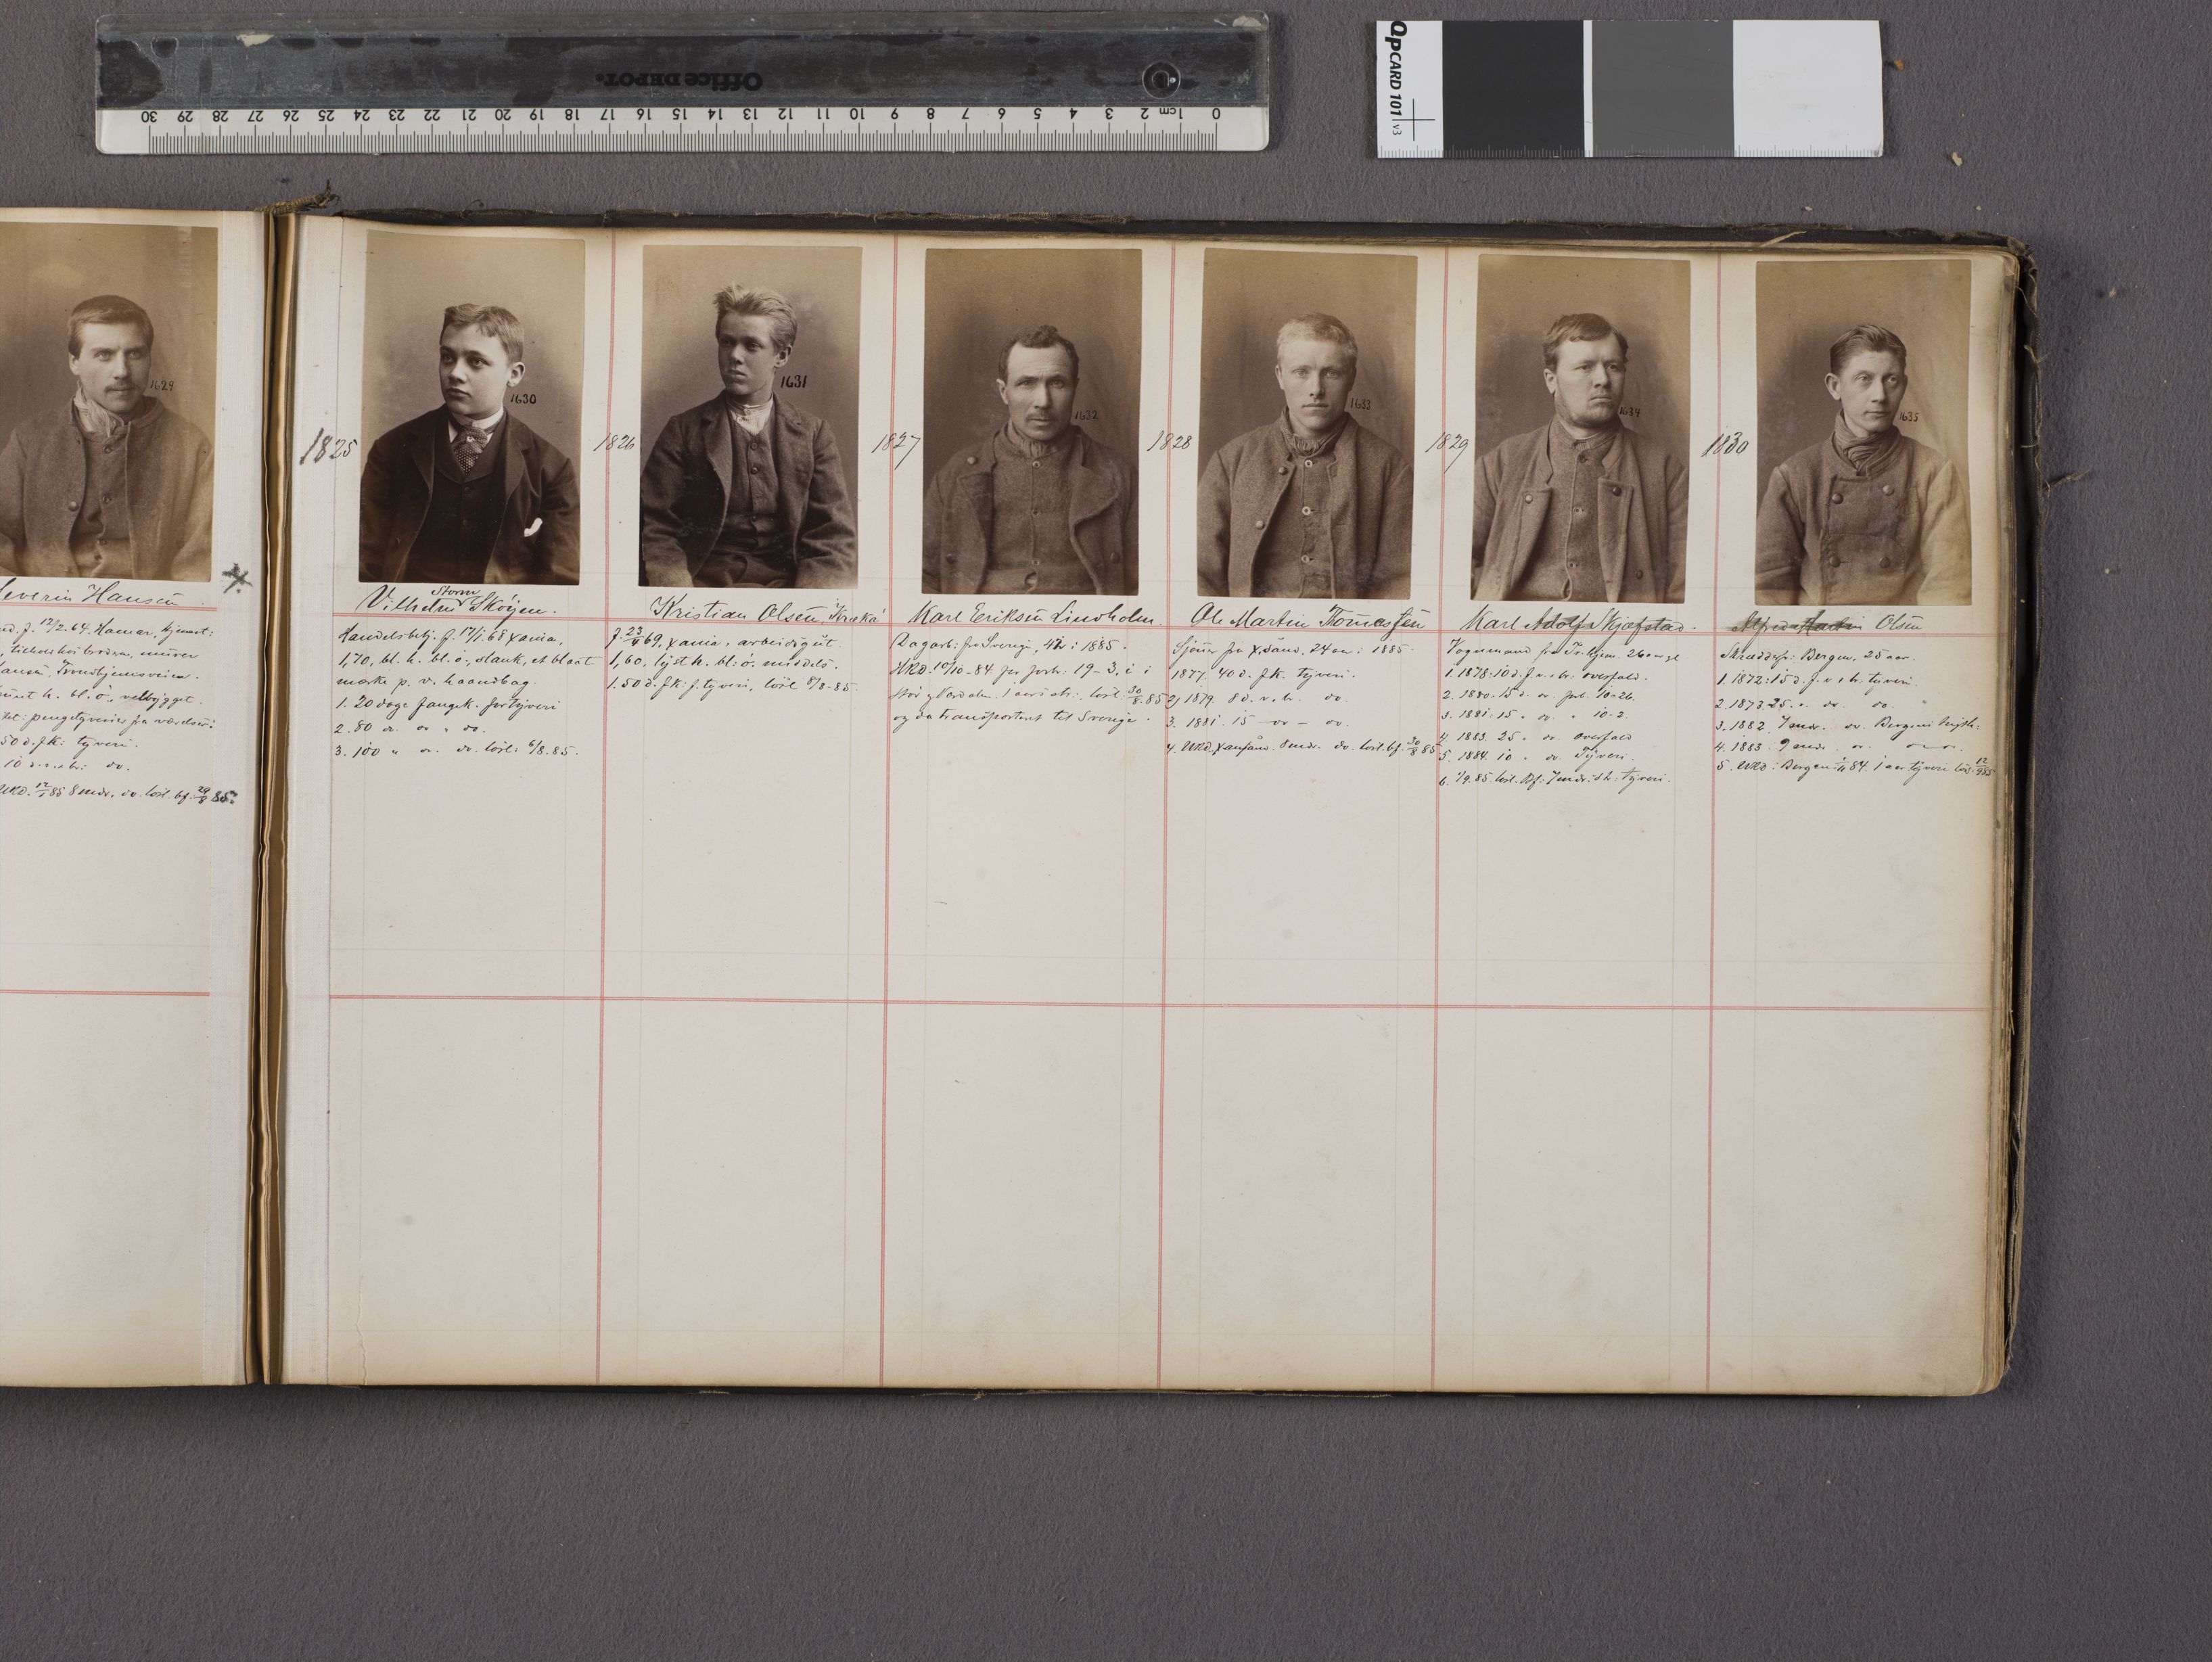 Office DEPOT.
30 29 28 27 26 25 24 23 22 21 20 19 18 17 16 15 14 13 12 11 10 9 8 7 6 5 4 3 2 cm 1 0
QPCARD 101 v3
1629
Severin Hansen
f. 12/2.64. Hamar,
murer
Trondhjemsveien.
h. bl. ö., velbygget.
pengetyverier fra værelser:
50 d. f.k: tyveri.
10 do.
12/1 85 8 mdr. do. lösl. bf. 29/8 85.
1825
1630
Storm
Vilhelm Sköyen.
Handelsbetj. f. 17/1.68 Xania,
1,70, bl. h. bl. ö., slank, et blaat
mærke p. v. haandbag.
1. 20 dage fangsk. for tyveri
2. 80 do. do.
3. 100 " do. lösl: 6/8.85.
1826
1631
Kristian Olsen, Kraka
f. 23/4 69, Xania, arbeidsgut.
1,60, lyst h. bl. ö. middels.
1. 50 d. f.k: f. tyveri, lösl 8/8-85.
1827
1632
Karl Eriksen Lindholm.
Dagarb. fra Sverige, 42 i 1885.
10/10-84 for forbr. 19-3, i
lösl: 30/8 85
og da transporteret til Sverige.
1828
1633
Ole Martin Tomassen
Sjömd fra X.sand, 24 aar i 1885.
1877. 40 d. f.k. tyveri.
2, 1879. 8 d. v. b. do.
3. 1881. 15 — do — do.
4. X.ansand. 8 mdr. do. lösl. bf. 30/8 85
1829
1634
Karl Adolf Skjefstad.
Vognmand fra Tr.hjem. 26 aar gl
1. 1878: 10 d. f. v. & br: overfald.
2. 1880: 15 d. do. forb. 10-26.
3. 1881: 15 " do. " 10-2.
4. 1883. 25 " do. overfald
5. 1884. 10 " do Tyveri.
6. 1/9.85. lösl. Bf. 7 mdr. tyveri.
1830
1635
Alfred Martin Olsen
Skrædder: Bergen, 25 aar.
1. 1872: 15 d. f. v. & br. tyveri.
2. 1873. 25 " do. do.
3. 1882. 7 mdr. do. Bergens
4. 1883. 9 mdr. do.
5. Bergen 84. 1 aar tyveri lösl. 12/9 85